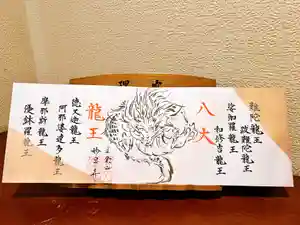 難陀龍王
跋難陀龍王
娑加羅龍王
和修吉龍王
八大
龍王
徳叉迦龍王
阿那婆達多龍王
摩那斯龍王
優鉢羅龍王